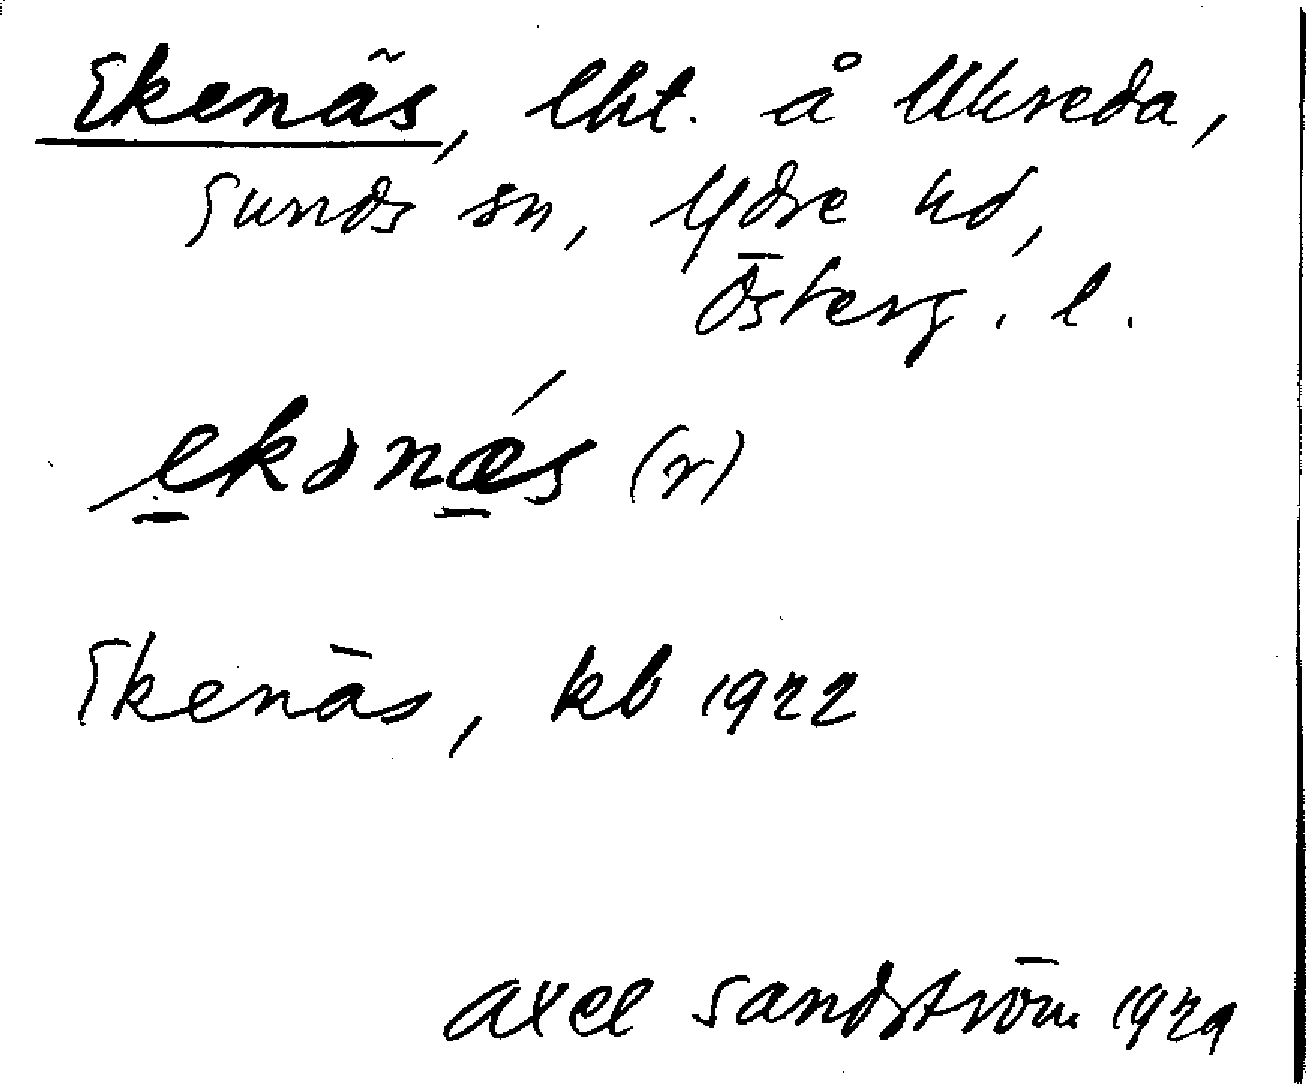 Ekenäs, lht. å Ukreda,
Sunds sn, Ydre hd,
Österg. l.
ekǝnǽs (r)
Ekenäs, kb 1922
Axel Sandström 1929